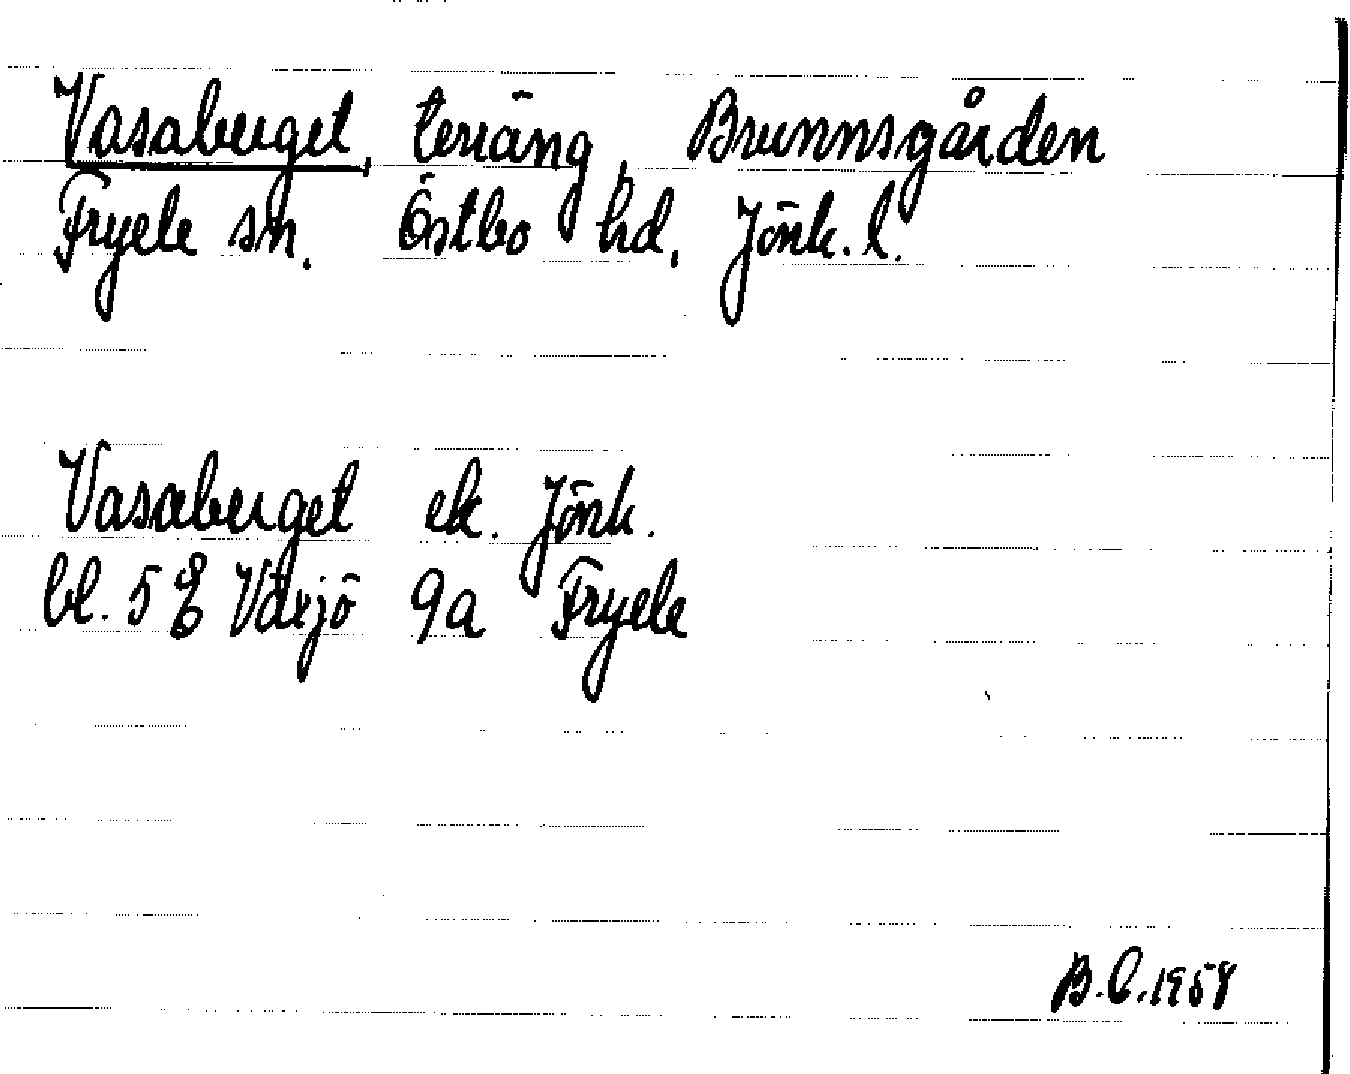 Vasaberget, terräng, Brunnsgården
Fryele sn. Östbo hd, Jönk. l.
Vasaberget ek. Jönk.
bl. 5 E Växjö 9a Fryele
B.C. 1958